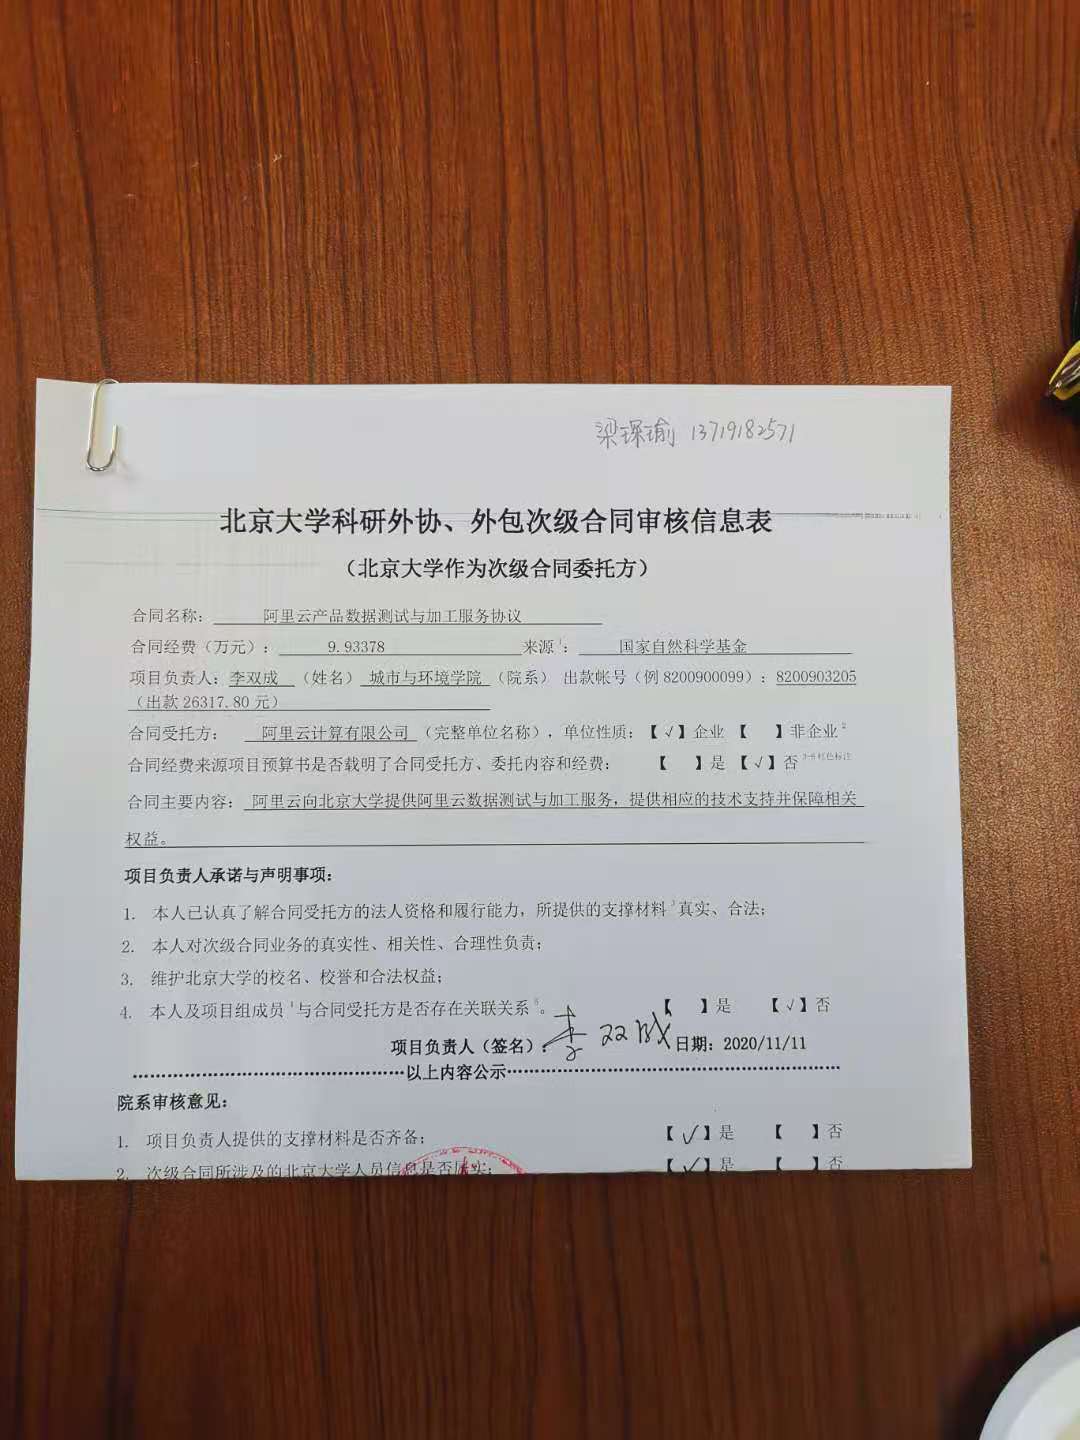 梁琛瑜 13719182571
北京大学科研外协、外包次级合同审核信息表
（北京大学作为次级合同委托方）
合同名称： 阿里云产品数据测试与加工服务协议
合同经费（万元）： 9.93378 来源1： 国家自然科学基金
项目负责人：李双成 （姓名） 城市与环境学院 （院系） 出款帐号（例 8200900099）：8200903205
（出款 26317.80 元）
合同受托方： 阿里云计算有限公司 （完整单位名称），单位性质：【√】企业 【 】非企业2
合同经费来源项目预算书是否载明了合同受托方、委托内容和经费： 【 】是 【√】否
合同主要内容： 阿里云向北京大学提供阿里云数据测试与加工服务，提供相应的技术支持并保障相关
权益。
项目负责人承诺与声明事项：
1. 本人已认真了解合同受托方的法人资格和履行能力，所提供的支撑材料3真实、合法；
2. 本人对次级合同业务的真实性、相关性、合理性负责；
3. 维护北京大学的校名、校誉和合法权益；
4. 本人及项目组成员4与合同受托方是否存在关联关系5。 【 】是 【√】否
项目负责人（签名）：李双成 日期：2020/11/11
以上内容公示
院系审核意见：
1. 项目负责人提供的支撑材料是否齐备； 【√】是 【 】否
2. 次级合同所涉及的北京大学人员信息是否属实； 【√】是 【 】否